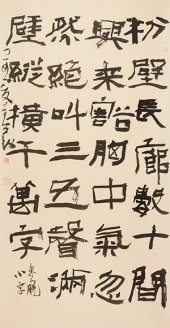 粉壁長廊數十間
興來豁胸中氣忽
然絕叫三五聲滿
壁縱橫千萬字
來脫小字